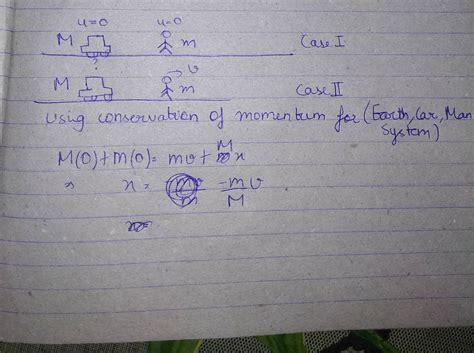 u=0 u=0
M m Case I
?
v
M m Case II
Using conservation of momentum for (Earth, Car, Man
System)
M(0)+m(0)= mv + M x
⇒ x = -mv/M
x=